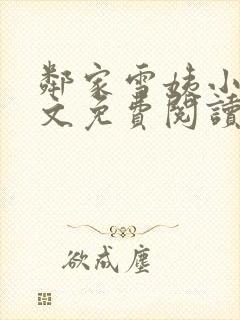 鄰家雪姨小
文免費閱讀
欲成塵